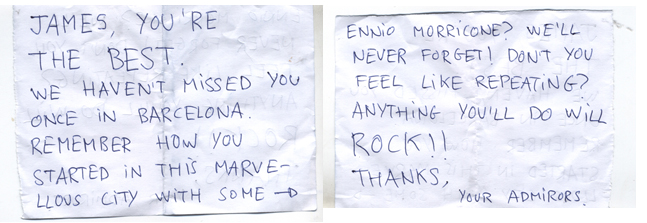 JAMES, YOU'RE
THE BEST.
WE HAVEN'T MISSED YOU
ONCE IN BARCELONA.
REMEMBER HOW YOU
STARTED IN THIS MARVE-
LLOUS CITY WITH SOME →
ENNIO MORRICONE? WE'LL
NEVER FORGET! DON'T YOU
FEEL LIKE REPEATING?
ANYTHING YOU'LL DO WILL
ROCK!!
THANKS,
YOUR ADMIRORS.